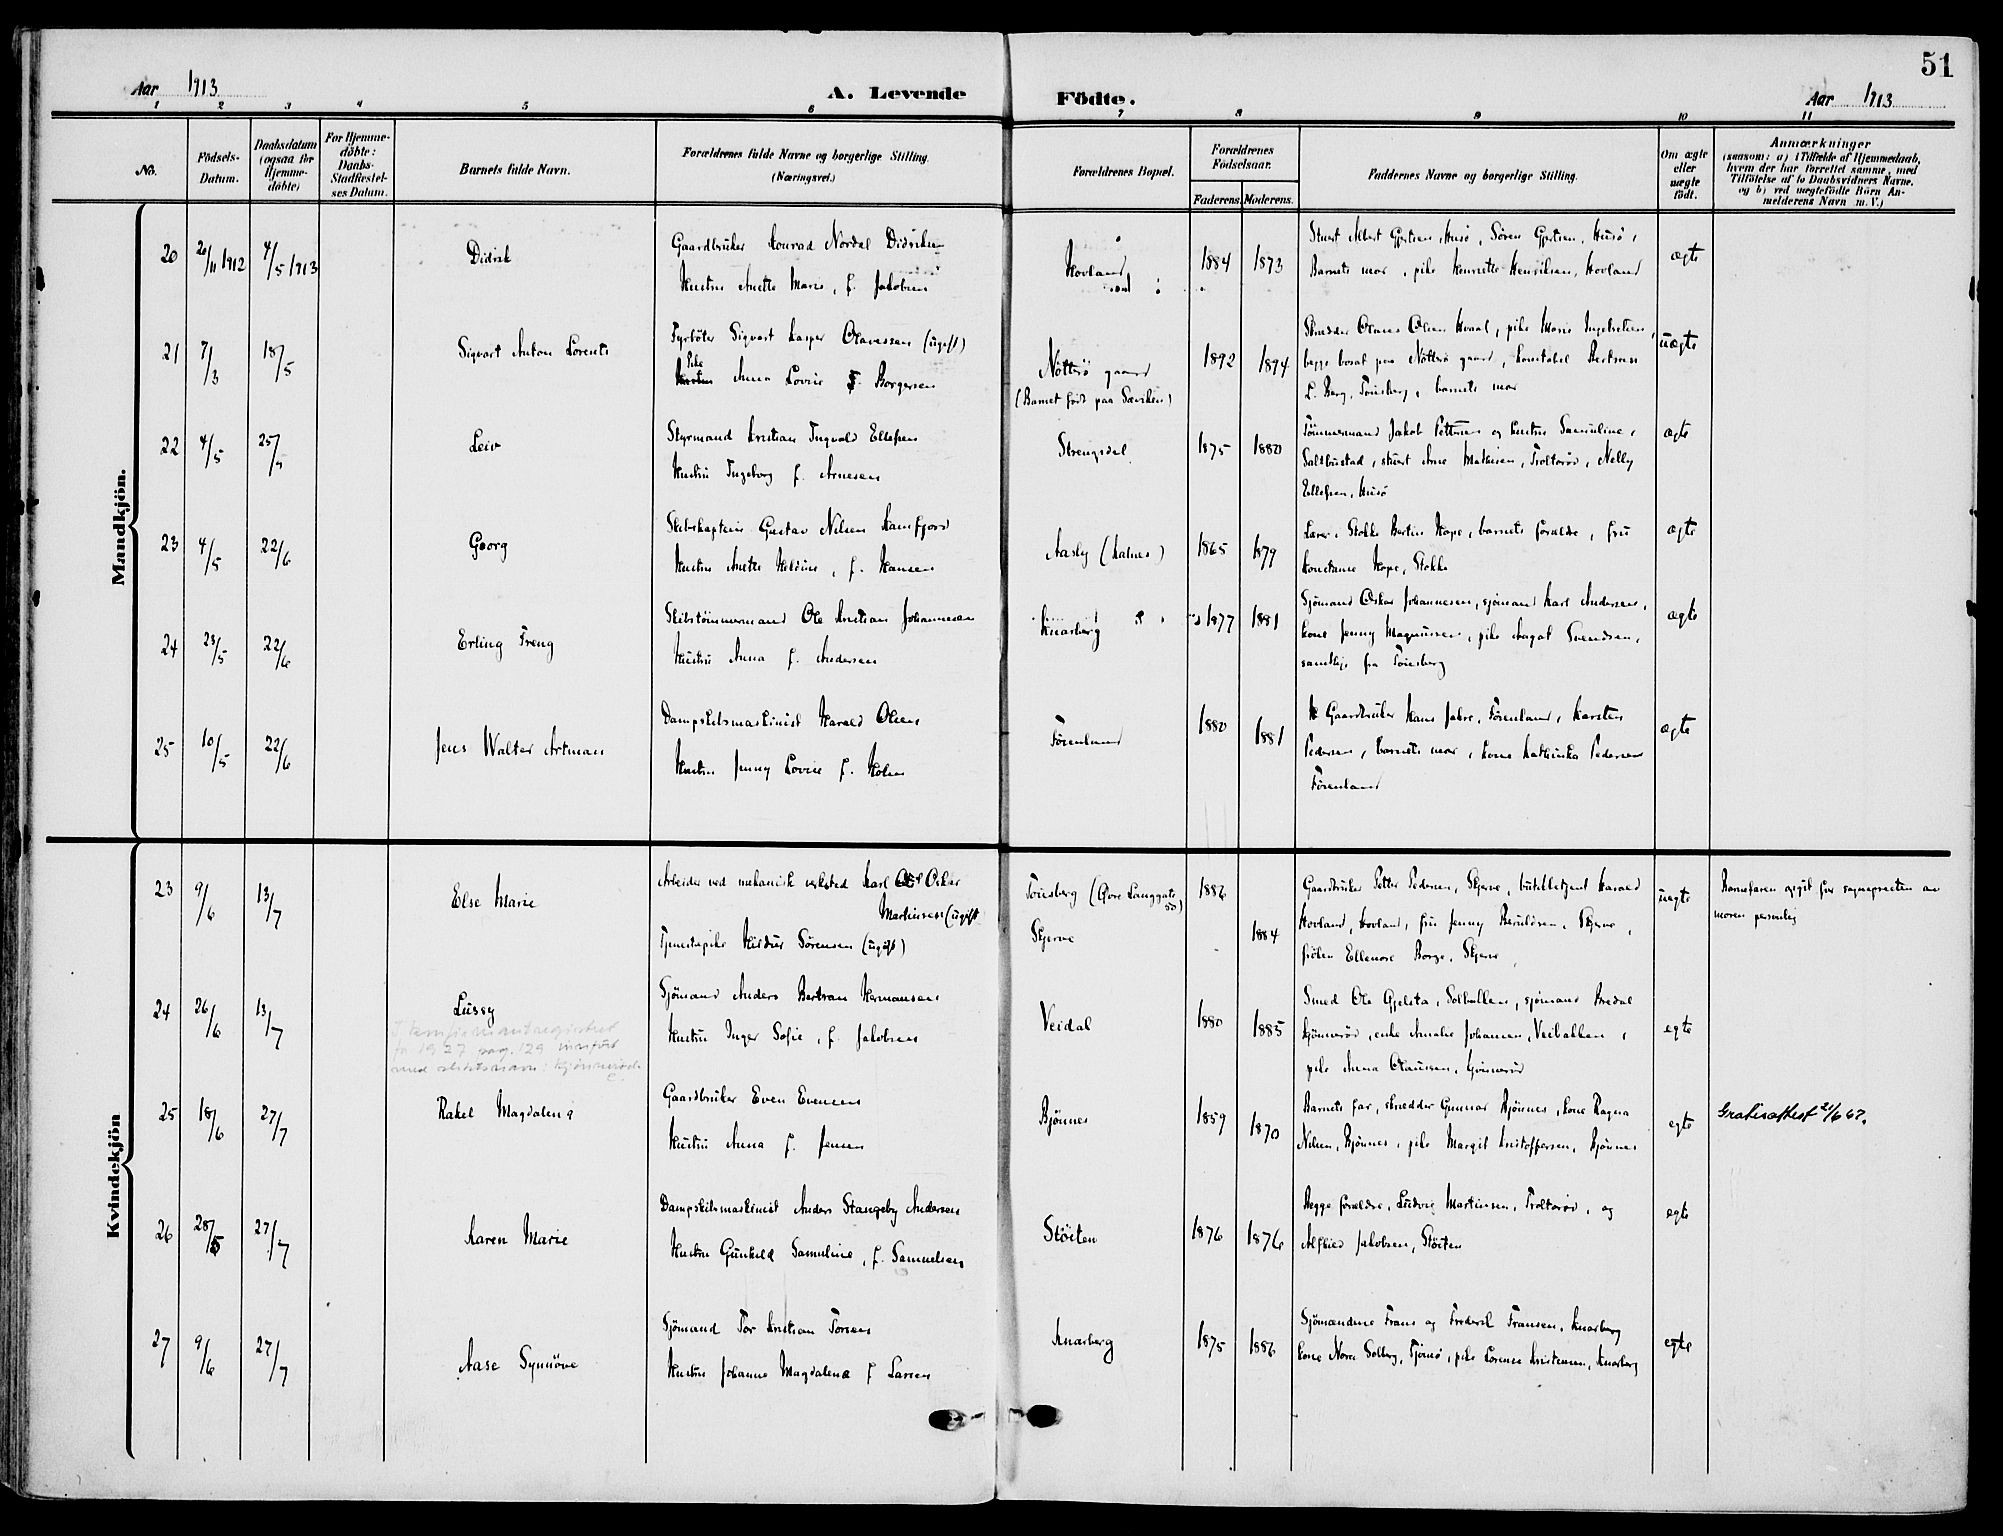 51
Aar 1913 A. Levende Födte. Aar 1913
1 2 3 4 5 6 7 8 9 10 11
No.
Födsels-
Datum.
Daabsdatum
(ogsaa for
Hjemme-
döbte)
For Hjemme-
döbte:
Daabs-
Stadfæstel-
ses Datum.
Barnets fulde Navn.
Forældrenes fulde Navne og borgerlige Stilling.
(Næringsvei.)
Forældrenes Bopæl.
Forældrenes
Födselsaar.
Faderens. Moderens.
Faddernes Navne og borgerlige Stilling.
Om ægte
eller
uægte
født.
Anmærkninger
(saasom: a) i Tilfælde af Hjemmedaab,
hvem der har forrettet samme, med
Tilföielse af to Daabsvidners Navne,
og b) ved uægtefödte Börn An-
melderens Navn m. V.)
Mandkjön.
20 20/11 1912 4/5 1913 Didrik
Gaardbruker Konrad Nordal Didriksen
Hustru Anette Marie, f. Jakobsen
Hovland
1884 1873
Stuert Albert Gjertsen, Husö, Sören Gjertsen, Husö,
Barnets mor, pike Henriette Henriksen, Hovland
ægte
21 7/3 18/5 Sigvart Anton Lorents
Fyrböter Sigvart Kasper Olavessen (ugift)
Pike
Hustru Anna Lovise F. Borgersen
Nötterö gaard
(Barnet födt paa Sæviken)
1892 1894
Skrædder Olaus Olsen Hvaal, pike Marie Ingebretsen,
begge bosat paa Nötterö gaard, konstabel Bertrem
L. Berg, Tönsberg, barnets mor
uægte
22 4/5 25/5 Leiv
Styrmand Kristian Ingvald Ellefsen
Hustru Ingeborg f. Arnesen
Strengsdal
1875 1880
Tömmermand Jakob Pettersen og hustru Samuline,
Saltbustad, stuert Arne Mathisen, Troltoröd, Nelly
Ellefsen, Husö
ægte
23 4/5 22/6 Georg
Skibskaptein Gustav Nilsen Kamfjord
Hustru Anette Heldine, f. Hansen
Aasly (Kalnes)
1865 1879
Lærer i Stokke Bertin Hope, barnets forældre, fru
Konstanse Hope, Stokke
ægte
24 23/5 22/6 Erling Freng
Skibstömmermand Ole Kristian Johannesen
Hustru Anna f. Andersen
Knarberg
1877 1881
Sjömand Oskar Johannesen, sjömand Karl Andersen,
kone Jenny Magnussen, pike Aagot Svendsen,
samtlige fra Tönsberg
ægte
25 10/5 22/6 Jens Walter Artman
Dampskibsmaskinist Harald Olsen
Hustru Jenny Lovise f. Holm
Förenland
1880 1881
Gaardbruker Hans Jahre, Förenland, Karsten
Pedersen, barnets mor, kone Kathinka Pedersen
Förenland
ægte
Kvindekjön
23 9/6 13/7 Else Marie
Arbeider ved mekanisk verksted Karl Oskar
Martinsen (ugift)
Tjenestepike Hildur Sörensen (ugift)
Tönsberg (Övre Langgate 50)
Skjerve
1886
1884
Gaardbruker Petter Pedersen, Skjerve, butikbetjent Harald
Hovland, Hovland, fru Jenny Beruldsen, Skjerve,
fröken Ellenore Borge, Skjerve
uegte
Barnefaren opgit for sognepresten av
moren personlig
24 26/6 13/7 Lussy
I konfirmantregistret
for 1927 pag. 129 innfört
med slektsnavn: Kjönneröd
Sjömand Anders Bertran Hermansen
Hustru Inger Sofie, f. Jakobsen
Veidal
1880 1885
Smed Ole Gjelsta, Solbakken, sjömand Hredal
Kjönneröd, enke Amalie Johansen, Veibakken,
pike Anna Olaussen, Gönneröd
egte
25 18/6 27/7 Rakel Magdalena
Gaardbruker Even Evensen
Hustru Anna f. Jensen
Bjönnes
1859 1870
Barnets far, skrædder Gunnar Bjönnes, kone Ragna
Nilsen, Bjönnes, pike Margit Kristoffersen, Bjönnes
egte
Gratisattest 21/6 67.
26 28/5 27/7 Karen Marie
Dampskibsmaskinist Anders Stangeby Andersen
Hustru Gunhild Samuline, f. Samuelsen
Stöiten
1876 1876
Begge forældre, Ludvig Martinsen, Troltoröd, og
Alfhild Jakobsen, Stöiten
egte
27 9/6 27/7 Aase Synnöve
Sjömand Tor Kristian Torsen
Hustru Johanne Magdalena f Larsen
Knarberg
1875 1886
Sjömændene Frans og Fredrik Fransen, Knarberg
kone Nora Solberg, Tjömö, pike Lorense Kristensen, Knarberg
egte